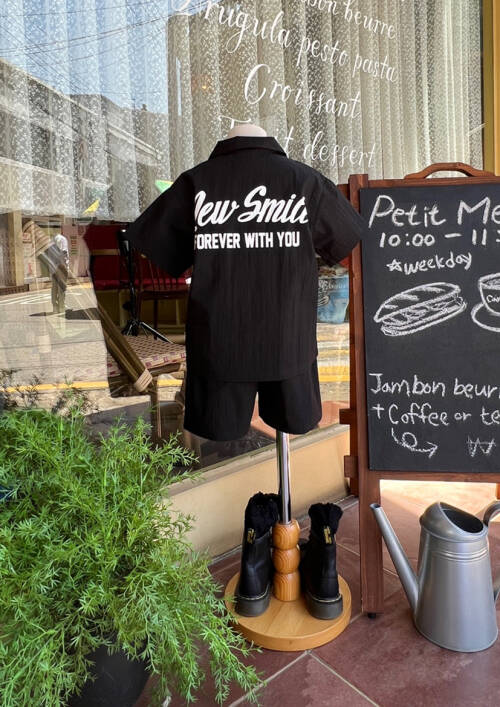 Jambon beurre
Arugula pesto pasta
Croissant
dessert
New Smith
FOREVER WITH YOU
Petit Me
10:00 - 11:3
☆weekday
Jambon beurr
+ Coffee or te
₩